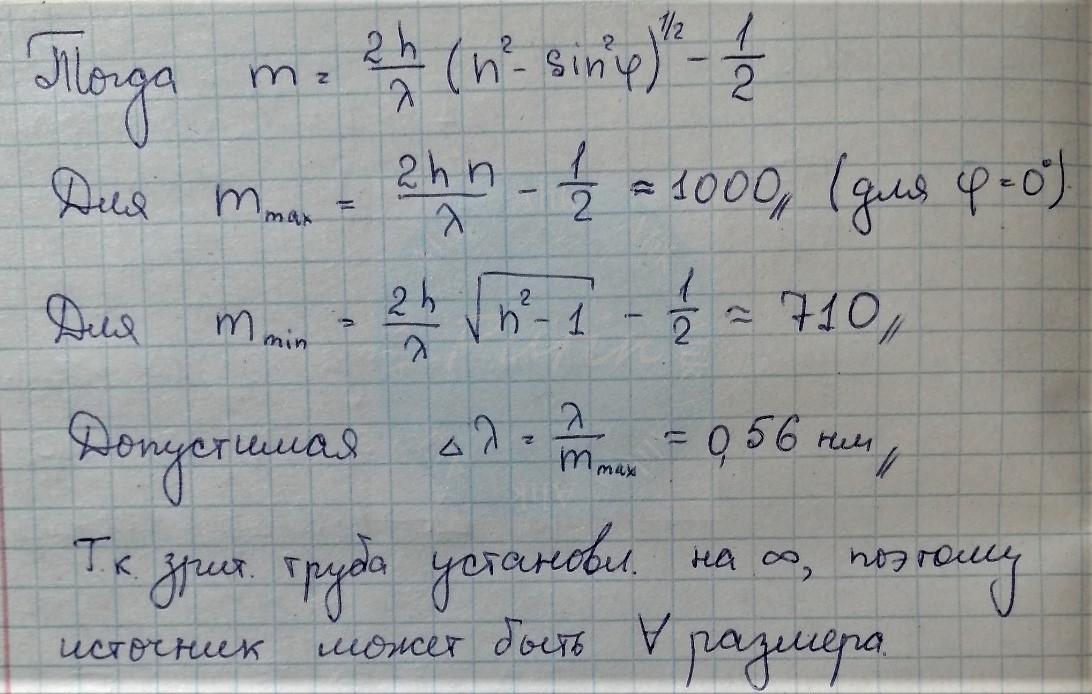 Тогда m = 2h/λ (n² - sin²φ)^1/2 - 1/2
Для m max = 2hn/λ - 1/2 ≈ 1000,, (для φ=0°).
Для m min = 2h/λ √(n² - 1) - 1/2 ≈ 710,,
Допустимая Δλ = λ/m max = 0,56 нм,,
Т.к. зрит. труба установл. на ∞, поэтому
источник может быть ∀ размера.